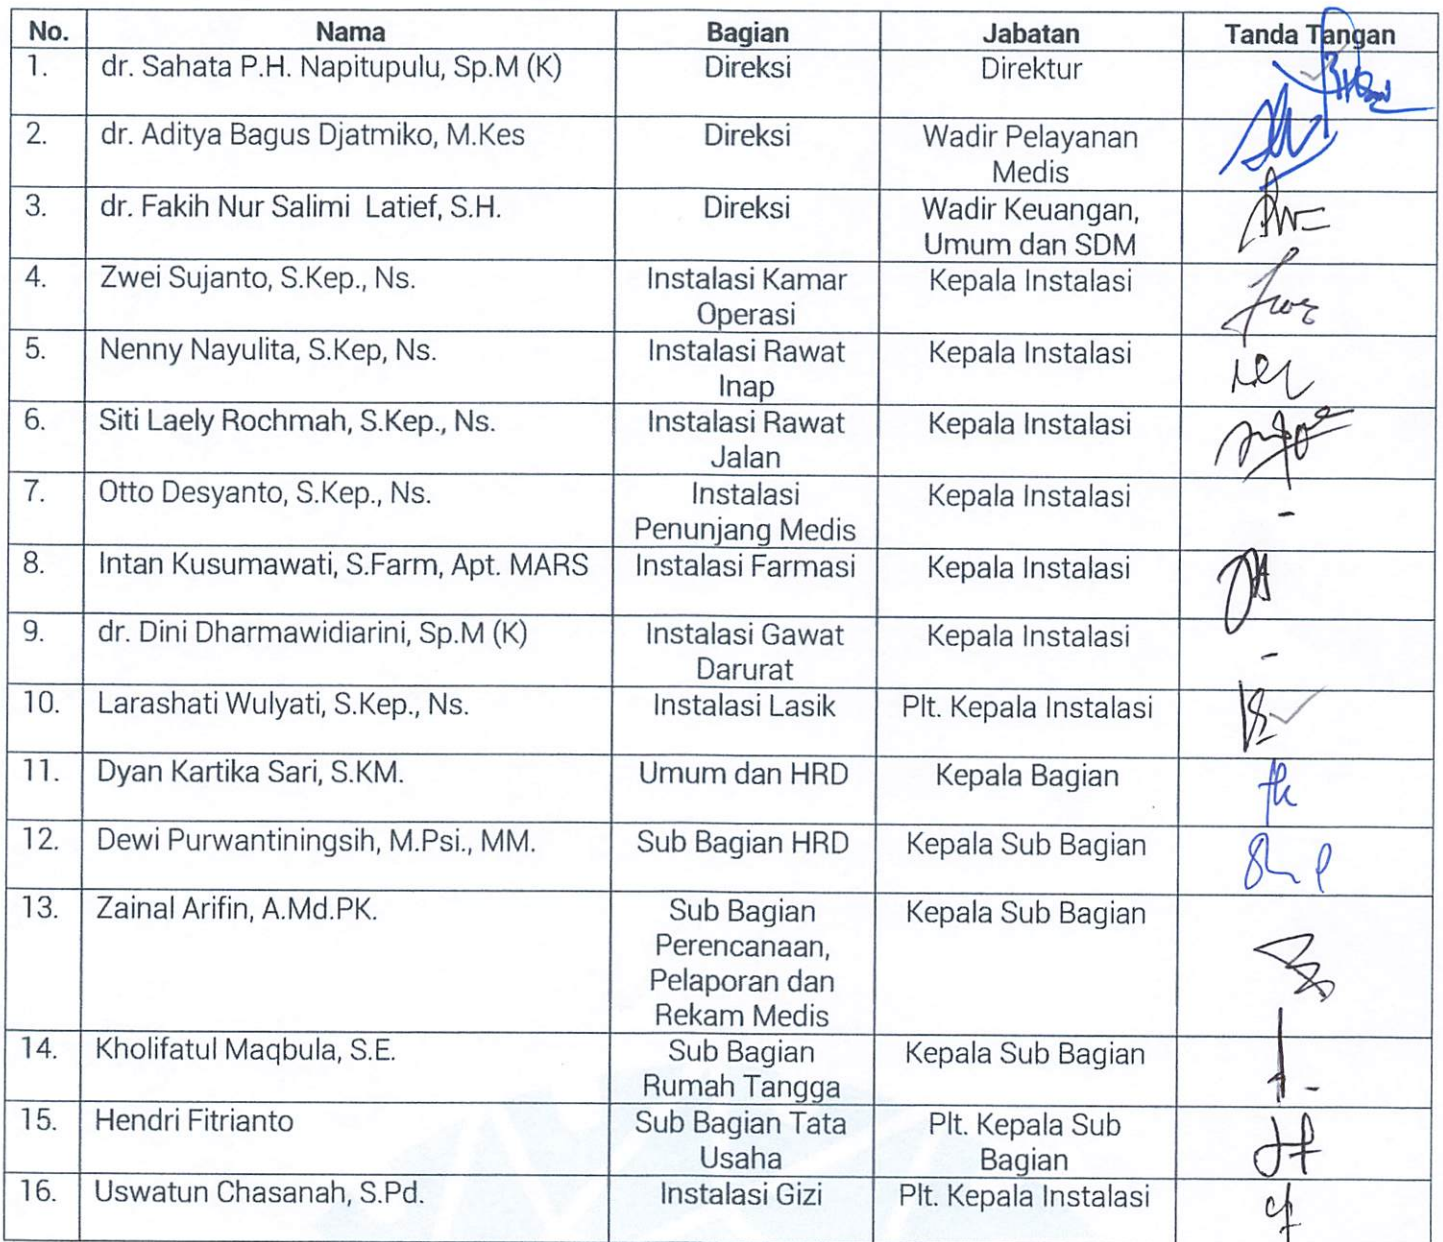 No. Nama Bagian Jabatan Tanda Tangan
1. dr. Sahata P.H. Napitupulu, Sp.M (K) Direksi Direktur
2. dr. Aditya Bagus Djatmiko, M.Kes Direksi Wadir Pelayanan
Medis
3. dr. Fakih Nur Salimi Latief, S.H. Direksi Wadir Keuangan,
Umum dan SDM
4. Zwei Sujanto, S.Kep., Ns. Instalasi Kamar Kepala Instalasi
Operasi
5. Nenny Nayulita, S.Kep, Ns. Instalasi Rawat Kepala Instalasi
Inap
6. Siti Laely Rochmah, S.Kep., Ns. Instalasi Rawat Kepala Instalasi
Jalan
7. Otto Desyanto, S.Kep., Ns. Instalasi Kepala Instalasi
Penunjang Medis -
8. Intan Kusumawati, S.Farm, Apt. MARS Instalasi Farmasi Kepala Instalasi
9. dr. Dini Dharmawidiarini, Sp.M (K) Instalasi Gawat Kepala Instalasi
Darurat -
10. Larashati Wulyati, S.Kep., Ns. Instalasi Lasik Plt. Kepala Instalasi
11. Dyan Kartika Sari, S.KM. Umum dan HRD Kepala Bagian
12. Dewi Purwantiningsih, M.Psi., MM. Sub Bagian HRD Kepala Sub Bagian
13. Zainal Arifin, A.Md.PK. Sub Bagian Kepala Sub Bagian
Perencanaan,
Pelaporan dan
Rekam Medis
14. Kholifatul Maqbula, S.E. Sub Bagian Kepala Sub Bagian
Rumah Tangga
15. Hendri Fitrianto Sub Bagian Tata Plt. Kepala Sub
Usaha Bagian
16. Uswatun Chasanah, S.Pd. Instalasi Gizi Plt. Kepala Instalasi